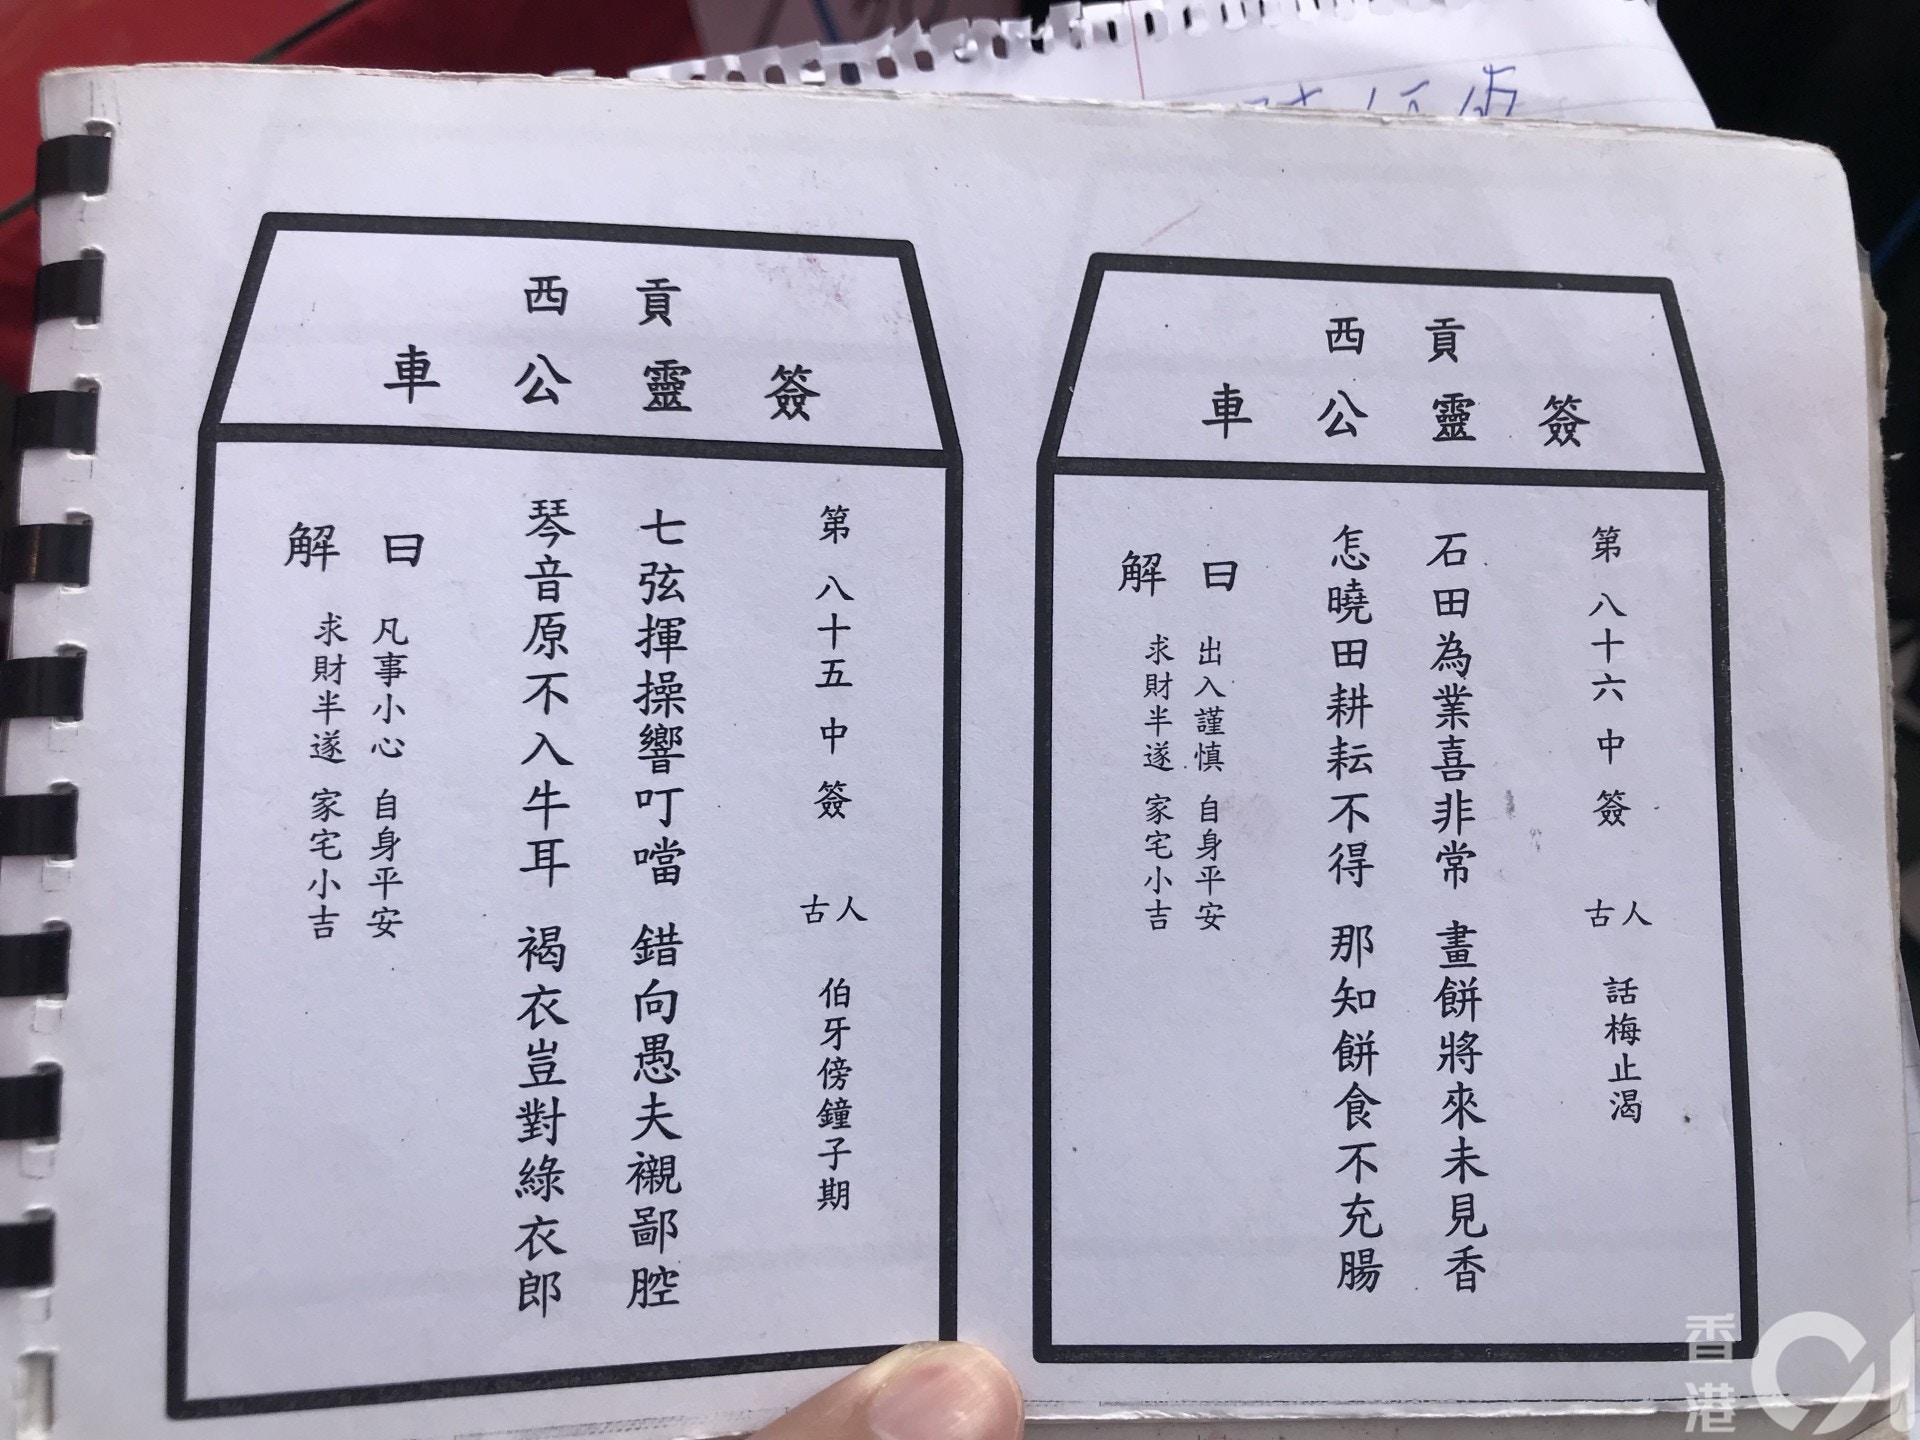 西貢
車公靈簽
第八十五中簽 古人 伯牙傍鐘子期
七弦揮操響叮噹 錯向愚夫襯鄙腔
琴音原不入牛耳 褐衣豈對綠衣郎
解曰
凡事小心 自身平安
求財半遂 家宅小吉
西貢
車公靈簽
第八十六中簽 古人 話梅止渴
石田為業喜非常 畫餅將來未見香
怎曉田耕耘不得 那知餅食不充腸
解曰
出入謹慎 自身平安
求財半遂 家宅小吉
香港
01